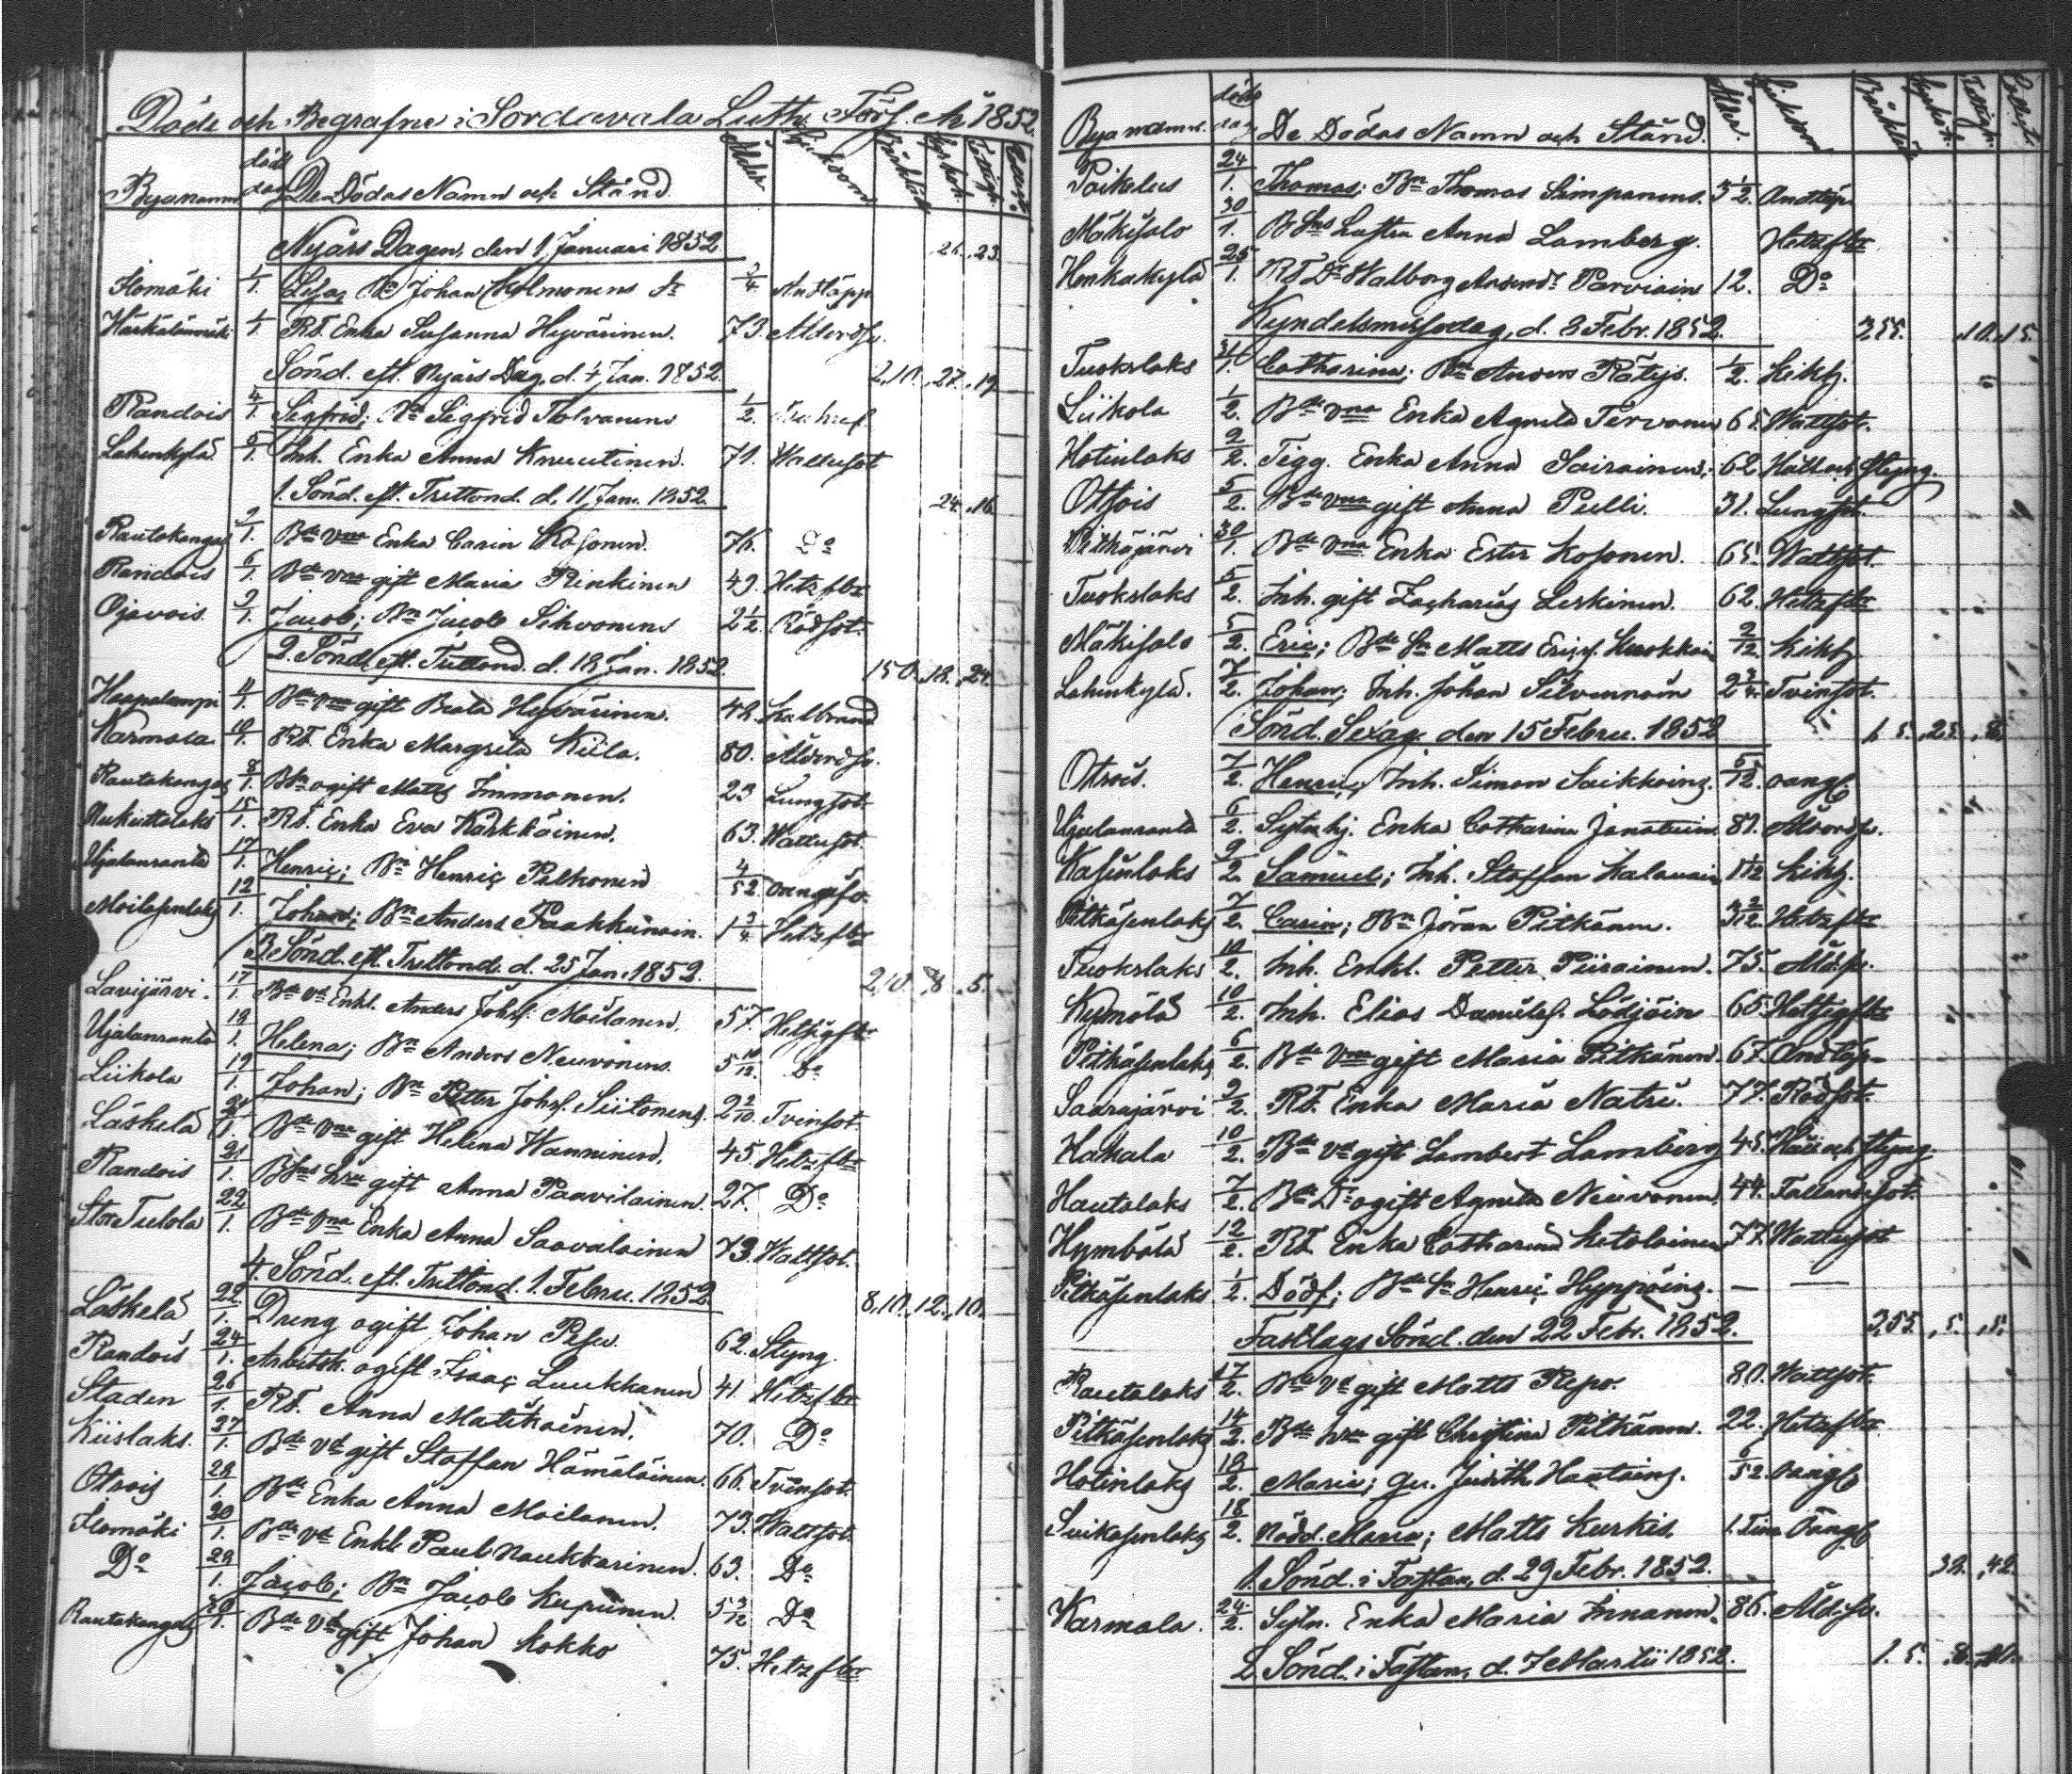 Döde och Begrafne i Sordavala Luth. Förs. År 1852.
Byanamn död dag De Dödas Namn och Stånd Ålder Sjukdom
Nyårs Dagen, den 1 Januari 1852. 26. 23.
Ilomäki 1/1. Johan 3/4 Andtäpp
1/1. Rt. Enka Susanna Hyvärinen. 73. Ålderds.
Sönd. eft. Nyårs Dag, d. 4 Jan. 1852. 2,10. 27. 19
Randois 4/1. Segfrid; Bn Segfrid Tolvanens 1/2.
Lahenkylä 5/1. Inh. Enka Anna Knuutinen. 71. Wattusot
1. Sönd. eft. Trettond. d. 11 Jan. 1852. 24. 16.
Rautakangas 2/1. Bde Vna Enka Carin Kosonen. 76. Do
Randois 6/1. Bde vna gift Maria Rinkinen 49. Hetz fbr
Ojavois 9/1. Jacob; Bn Jacob Sihvonens 2 1/2. Rödsot.
2. Sönd. eft. Trettond. d. 18 Jan. 1852. 150. 18. 24.
Haapalampi 11/1. Bde vna gift Beata Hyvärinen. 42. Kalbrand
10/1. Rt. Enka Margreta Kiila. 80. Ålderds.
Rautakangas 8/1. Bn ogift Matts Immonen. 23 Lungsot.
Nukuttalaks 15/1. Rt. Enka Eva Karkkäinen. 63. Wattusot.
Ujalanranta 17/1. Henric; Bn Henric Pelkonen 4/52.
Moilasenlaks 12/1. Johan; Bn Anders Paakkunain. 1 3/4 Hetz fbr
3 Sönd. eft. Trettond. d. 25 Jan. 1852. 2,10. 8. 5.
Lavijärvi. 17/1. Bde vd Enkl. Anders Johss. Moilanen. 57. Hetz fbr
Ujalanranta 19/1. Helena; Bn Anders Neuvonens. 5 10/12. Do
Liikola 19/1. Johan; Bn Petter Johss. Siitonens. 2 2/10. Tvinsot.
Läskelä 21/1. Bde Vna gift Helena Wanninen. 45. Hetz fbr
Randois 21/1. gift Anna Paavilainen. 27. Do
Stor Tulola 22/1. Bde Vna Enka Anna Saavalainen 73. Wattsot.
4. Sönd. eft. Trettond. 1. Febru. 1852. 8,10. 12. 10.
Läskelä 22/1. Dreng ogift Johan Pesu. 62. Styng.
Randois 24/1. Arbetsk. ogift Isaac Luukkanen 41. Hetz fbr
Staden 26/1. Rt. Anna Matikainen. 70. Do
Kiislaks. 27/1. Bde Vd gift Staffan Hämäläinen. 66. Tvinsot.
Otrois 29/1. Bde Enka Anna Moilanen. 73. Wattsot.
Ilomäki 30/1. Bde Vd Enkl. Paul Naukkarinen. 63. Do
Do 29/1. Jacob; Bn Jacob Kupiainen. 5 3/12 Do
Rautakangas Bde Vd gift Johan Kokko 75. Hetz fbr
Byanamn. död dag De Dödas Namn och Stånd. Ålder. Sjukdom
Poikelus 24/1. Thomas; Bn Thomas Simpanens. 3 1/2. Andtäp.
Mäkisalo 30/1. Anna Lamberg. Hetz fbr
Honkakylä 25/1. Rt Dr Walborg Parviain 12. Do
Kyndelsmessodag, d. 8 Febr. 1852. 3,55. 10. 15.
Tuokslaks Catharina; Bn Anders Rätys. 1/2. Kikh.
Liikola 1/2. Bde Vna Enka Agneta Tervonen 65. Wattsot.
Hotinlaks 2/2. Tigg. Enka Anna Sairainen. 62. Håll och Styng.
Ottois 5/2. Bde vna gift Anna Pulli. 31. Lungsot.
Pitkäjärvi 30/1. Bde Vna Enka Ester Kosonen. 65. Wattsot.
Tuokslaks 5/2. Inh. gift Zacharias Leskinen. 62. Hetz fbr
Mäkisalo 5/2. Eric; Bde Sn Matts Ericss. 2/12. Kikh
Lahenkylä. 7/2. Johan; Inh. Johan Silvennoin 2 3/4. Tvinsot.
Sönd. Sexag. den 15 Febru. 1852 1. 5. 25. 8.
Otrois. 7/2. Henric; Inh. Simon Saikkoins. 5/12.
Ujalanranta 6/2. Enka Catharina 81. Ålderds.
Kasinlaks 9/2. Samuel; Inh. Staffan Kalanain Kikh.
Pitkäsenlaks 7/2. Carin; Bn Jöran Pitkänen. Hetz fbr
Tuokslaks 10/2. Inh. Enkl. Petter Piirainen. 75. Åld.
Kymölä 10/2. Inh. Elias Danielss. Lödjöin 65.
Pitkäsenlaks 6/2. Bde Vna gift Maria Pitkänen. 67. Andtäp
Saarajärvi 9/2. Rt. Enka Maria Natri. 77. Rödsot.
Hakala 10/2. Bde vd gift Lambert Lamberg 45. Håll och Styng.
Hautalaks 7/2. Bde Dr ogift Agneta Neuvonen. 44. Fallandesot.
Hympölä 12/2. Rt. Enka Catharina Ketolainen 77. Wattusot
Pitkäsenlaks 1/2. Dödf; Bde Sn Henric Hyppöins. — —
Fastlags Sönd. den 22 Febr. 1852. 3,55. 5. 5.
Rautalaks 17/2. Bde Vd gift Matts Repo. 80. Wattsot.
Pitkäsenlaks 14/2. Bde gift Christina Pitkänen. 22. Hetz fbr
Hotinlaks 18/2. Maria; Qu. Judith Haatains. 6/52.
Suikasenlaks 18/2. Nödd. Maria; Matts Kurkis. 1. Tim
1. Sönd. i Fastan, d. 29 Febr. 1852. 32. 42.
Karmala. 24/2. Enka Maria Innanen. 86. Åld.
2. Sönd. i Fastan, d. 7 Martii 1852. 1. 5.